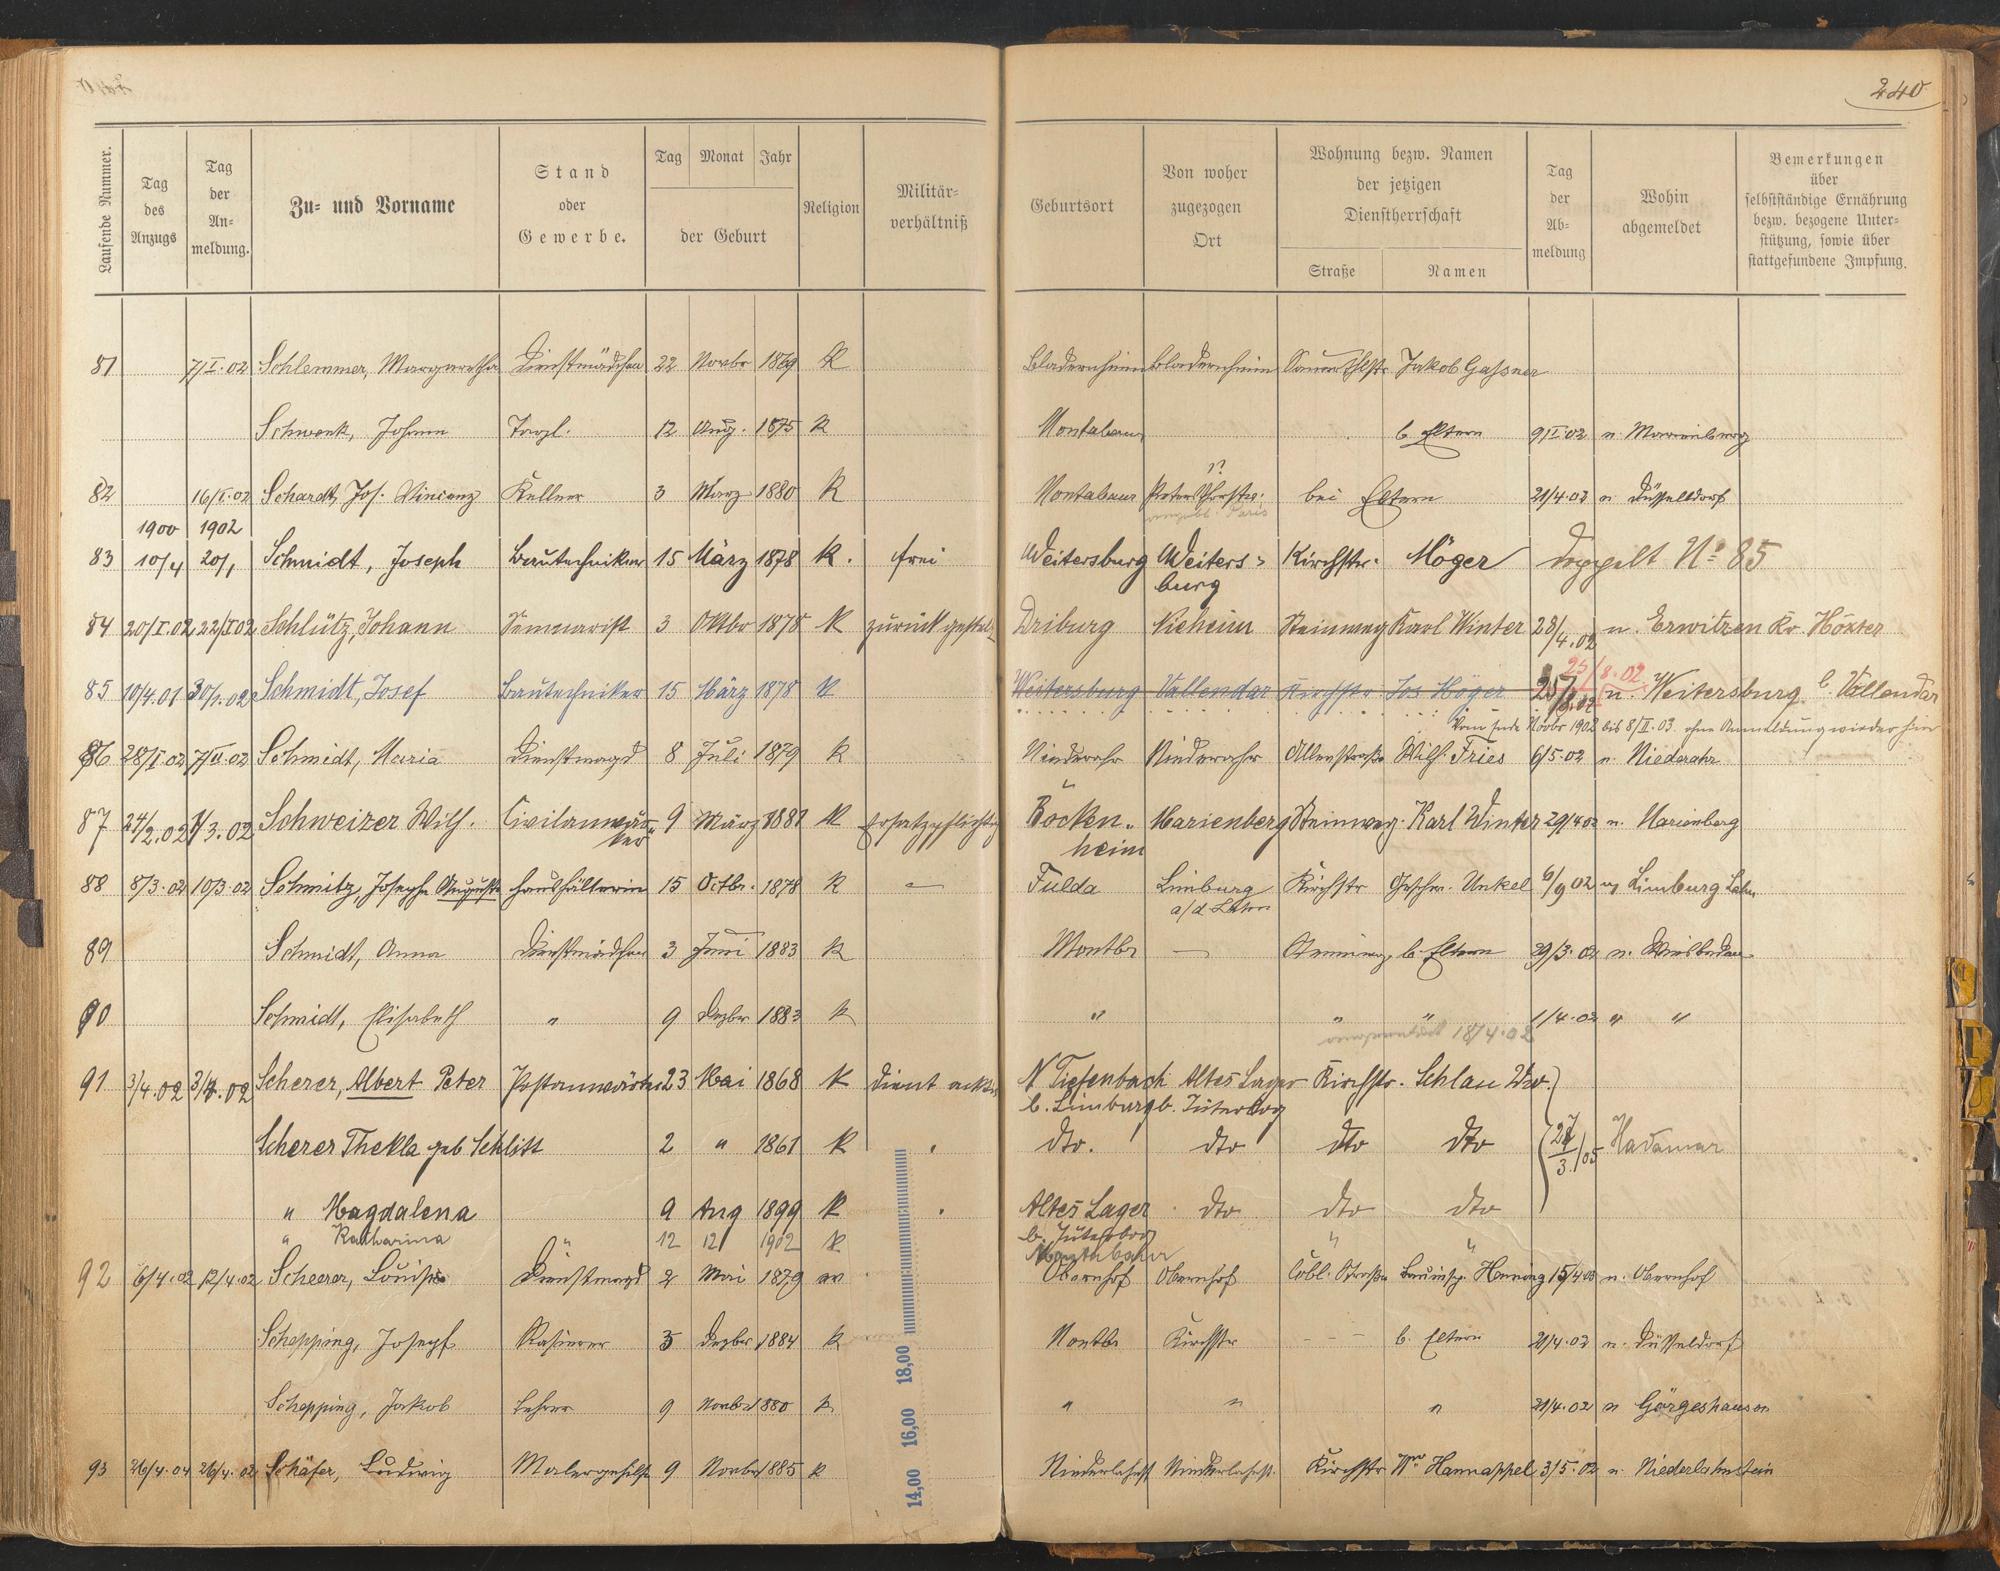 240
Laufende Nummer.
Tag des Anzugs
Tag der An-meldung.
Zu- und Vorname
Stand oder Gewerbe.
Tag Monat Jahr
der Geburt
Religion
Militär-verhältniß
Geburtsort
Von woher zugezogen Ort
Wohnung bezw. Namen der jetzigen Dienstherrschaft
Straße Namen
Tag der Ab-meldung
Wohin abgemeldet
Bemerkungen über selbstständige Ernährung bezw. bezogene Unter-stützung, sowie über stattgefundene Impfung.
81 7/I.02 Schlemmer, Margaretha Dienstmädchen 22 Novbr 1869 K Bladernheim Bladernheim Jakob Gaßner
Schwenk, Johann Tagl. 12 Aug. 1875 K Montabaur b. Eltern 9/I.02 n. Marienberg
82 Schardt, Jos. Vincenz Kellner 3 März 1880 K Montabaur bei Eltern 21/4.02 n. Düsseldorf
1900 1902
83 10/4 20/1 Schmidt, Joseph Bautechniker 15 März 1878 K. frei Weitersburg Weiters-burg Kirchstr. Höger doppelt No 85
84 20/I.02 22/I02 Schlütz, Johann Seminarist 3 Oktbr 1878 K zurückgestellt Driburg Nieheim Steinweg Karl Winter 28/4.02 n. Erwitzen Kr. Höxter
85 10/4.01 30/1.02 Schmidt, Josef Bautechniker 15 März 1878 K Weitersburg Vallendar Kirchstr Jos Höger 25/8.02 25/8.02 n. Weitersburg b. Vallendar
Vom Ende Novbr 1902 bis 8/II.03 ohne Anmeldung wieder hier
86 28/I.02 7/II.02 Schmidt, Maria Dienstmagd 8 Juli 1879 K Niederahr Niederahr Allerstraße Wilh. Fries 6/5.02 n. Niederahr
87 24/2.02 1/3.02 Schweizer Wilh. Civilanwärter 9 März 1881 K Ersatzpflichtig Bocken-heim Marienberg Steinweg. Karl Winter 29/4 02 n. Marienberg
88 8/3.02 10/3.02 Schmitz, Josepha Auguste Haushälterin 15 Octbr. 1878 K — Fulda Limburg a/d Lahn Kirchstr Geschw. Unkel 6/9 02 n. Limburg Lahn
89 Schmidt, Anna Dienstmädchen 3 Juni 1883 K Montbr — Steinweg b. Eltern 29/3.02 n. Wiesbaden
90 Schmidt, Elisabeth " 9 Dezbr 1883 K " " " 1/4.02 " "
18/4.02
91 3/4.02 3/4.02 Scherer, Albert Peter Postanwärter 23 Mai 1868 K dient N Tiefenbach b. Limburg Altes Lager b. Jüterbog Kirchstr. Schlau Ww.
Scherer Thekla geb Schlitt 2 " 1861 K dto. dto dto dto 27/3/05 Hadamar
" Magdalena 9 Aug 1899 K Altes Lager b. Jüterbog dto dto dto
" Katharina 12 12 1902 K Montabaur " "
92 6/4.02 12/4.02 Scheerer, Louise Dienstmagd 2 Mai 1879 ev Obernhof Obernhof Cobl. Straße Bauinsp. Henning 15/4 03 n. Obernhof
Schepping, Joseph Rasierer 5 Dezbr 1884 K Montbr Kirchstr - - - b. Eltern 21/4.02 n. Düsseldorf
Schepping, Jakob Lehrer 9 Novbr 1880 K " " " 21/4.02 n Görgeshausen
93 26/4.04 26/4.02 Schäfer, Ludwig Malergehilfe 9 Novbr 1885 K Niederlahnst Niederlahnst. Kirchstr Wwe Hannappel 3/5.02 n. Niederlahnstein
14,00 16,00 18,00